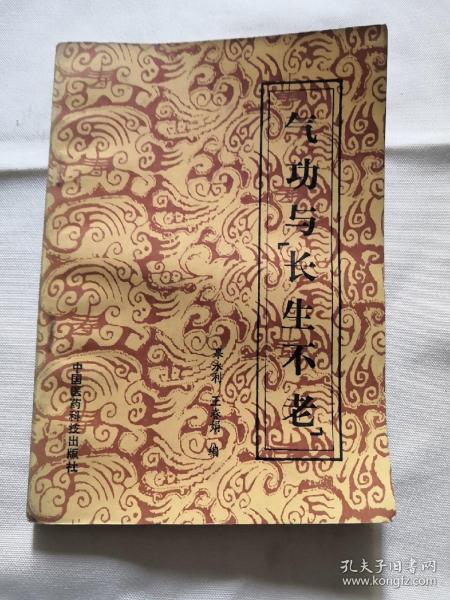 气功与「长生不老」
永利 王 编
中国医药科技出版社
孔夫子旧书网
www.kongfz.com